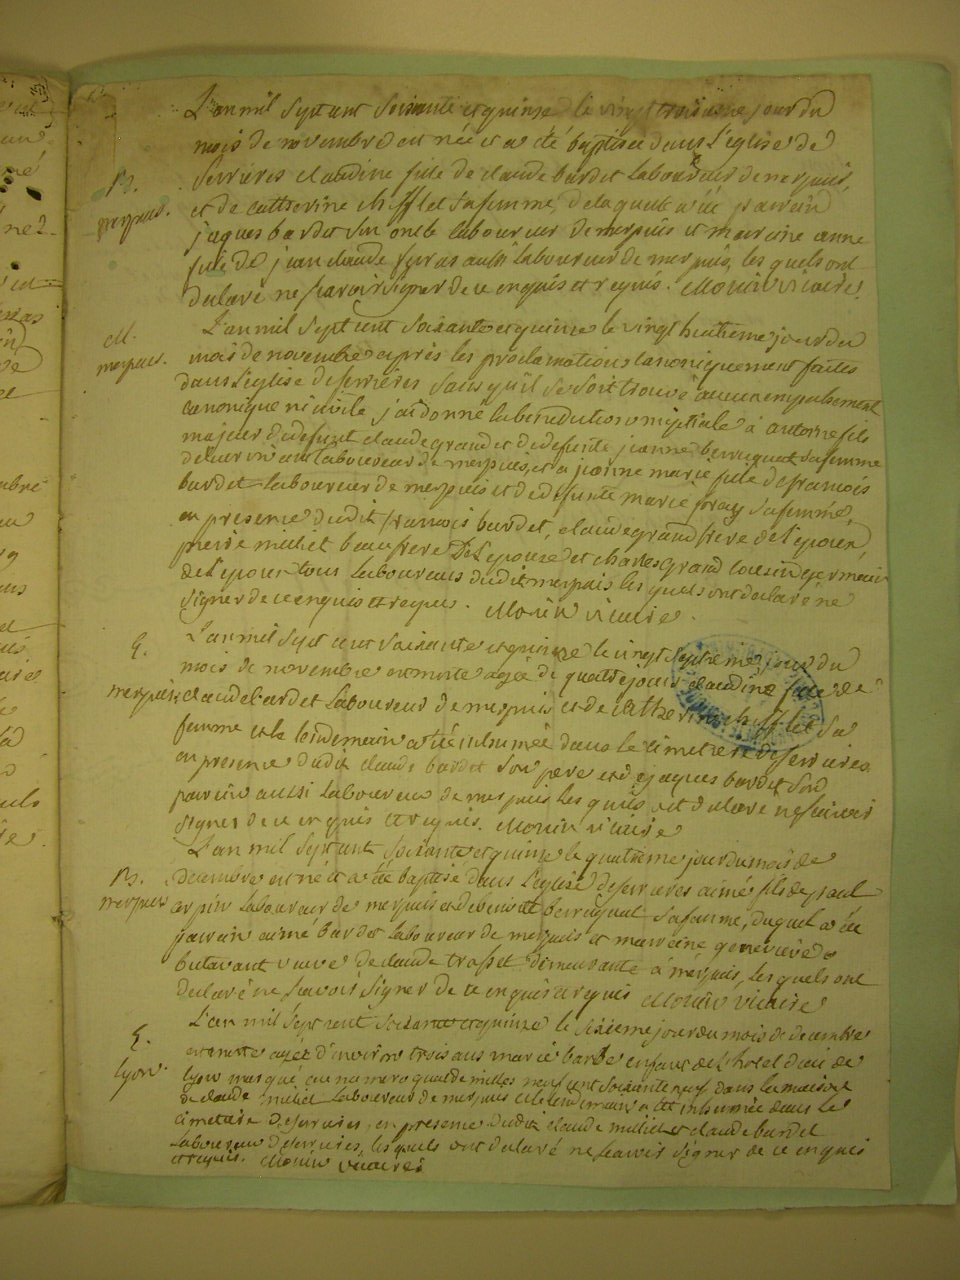 L'an mil sept cent soixante et quinze le vingt troisieme jour du
mois de novembre est née et a eté baptisée dans l'eglise de
B. Serrieres claudine fille de claude bardet laboureur de merpuis,
merpuis. et de catherine chifflet sa femme, de laquelle a été parrain
jaques bardet son oncle laboureur de merpuis et marraine anne
fille de jean claude aussi laboureur de merpuis, les quels ont
declaré ne scavoir signer de ce enquis et requis. Monin vicaire.
M. L'an mil sept cent soixante et quinze le vingt huitieme jour du
merpuis. mois de novembre après les proclamations canoniquement faites
dans l'eglise de serrières sans qu'il se soit trouvé aucun empechement
canonique ni civile, j'ai donné la benediction nuptiale à antoine fils
majeur de defunt claude grand et de defunte jeanne berruquet sa femme
de leur vivant laboureur de merpuis, et a jeanne marie fille de francois
bardet laboureur de merpuis et de defunte marie sa femme,
en presence dudit francois bardet, claude grand frere de l'epoux,
pierre milliet beau frere de l'epouse et charles grand cousin germain
de l'epoux tous laboureurs dudit merpuis les quels ont declaré ne
signer de ce enquis et requis. Monin vicaire.
E. L'an mil sept cent soixante et quinze le vingt septieme jour du
mois de novembre est morte agée de quatre jours claudine fille de
merpuis. claude bardet laboureur de merpuis et de catherine chifflet sa
femme et le lendemain a été inhumée dans le cimetiere de serrieres
en presence dudit claude bardet son pere et de jaques bardet son
parrain aussi laboureur de merpuis les quels ont declaré ne scavoir
signer de ce enquis et requis. Monin vicaire
L'an mil sept cent soixante et quinze le quatrieme jour du mois de
B. decembre est né et a été baptisé dans l'eglise de serrieres aimé fils de
merpuis laboureur de merpuis et de berruquet sa femme, duquel a été
parrain aimé bardet laboureur de merpuis et marraine genevieve
butavant veuve de claude trosset demeurante à merpuis, les quels ont
declaré ne scavoir signer de ce enquis et requis Monin vicaire
L'an mil sept cent soixante et quinze le sixieme jour du mois de decembre
E. est morte agée d'environ trois ans marie barbe enfant de l'hotel dieu de
lyon. lyon marqué au numero quatre milles neuf cent soixante neuf dans la maison
de claude milliet laboureur de merpuis et le lendemain a été inhumée dans le
cimetiere de serrieres, en presence dudit claude milliet et claude bardet
laboureur de serrieres, les quels ont declaré ne scavoir signer de ce enquis
et requis. Monin vicaire